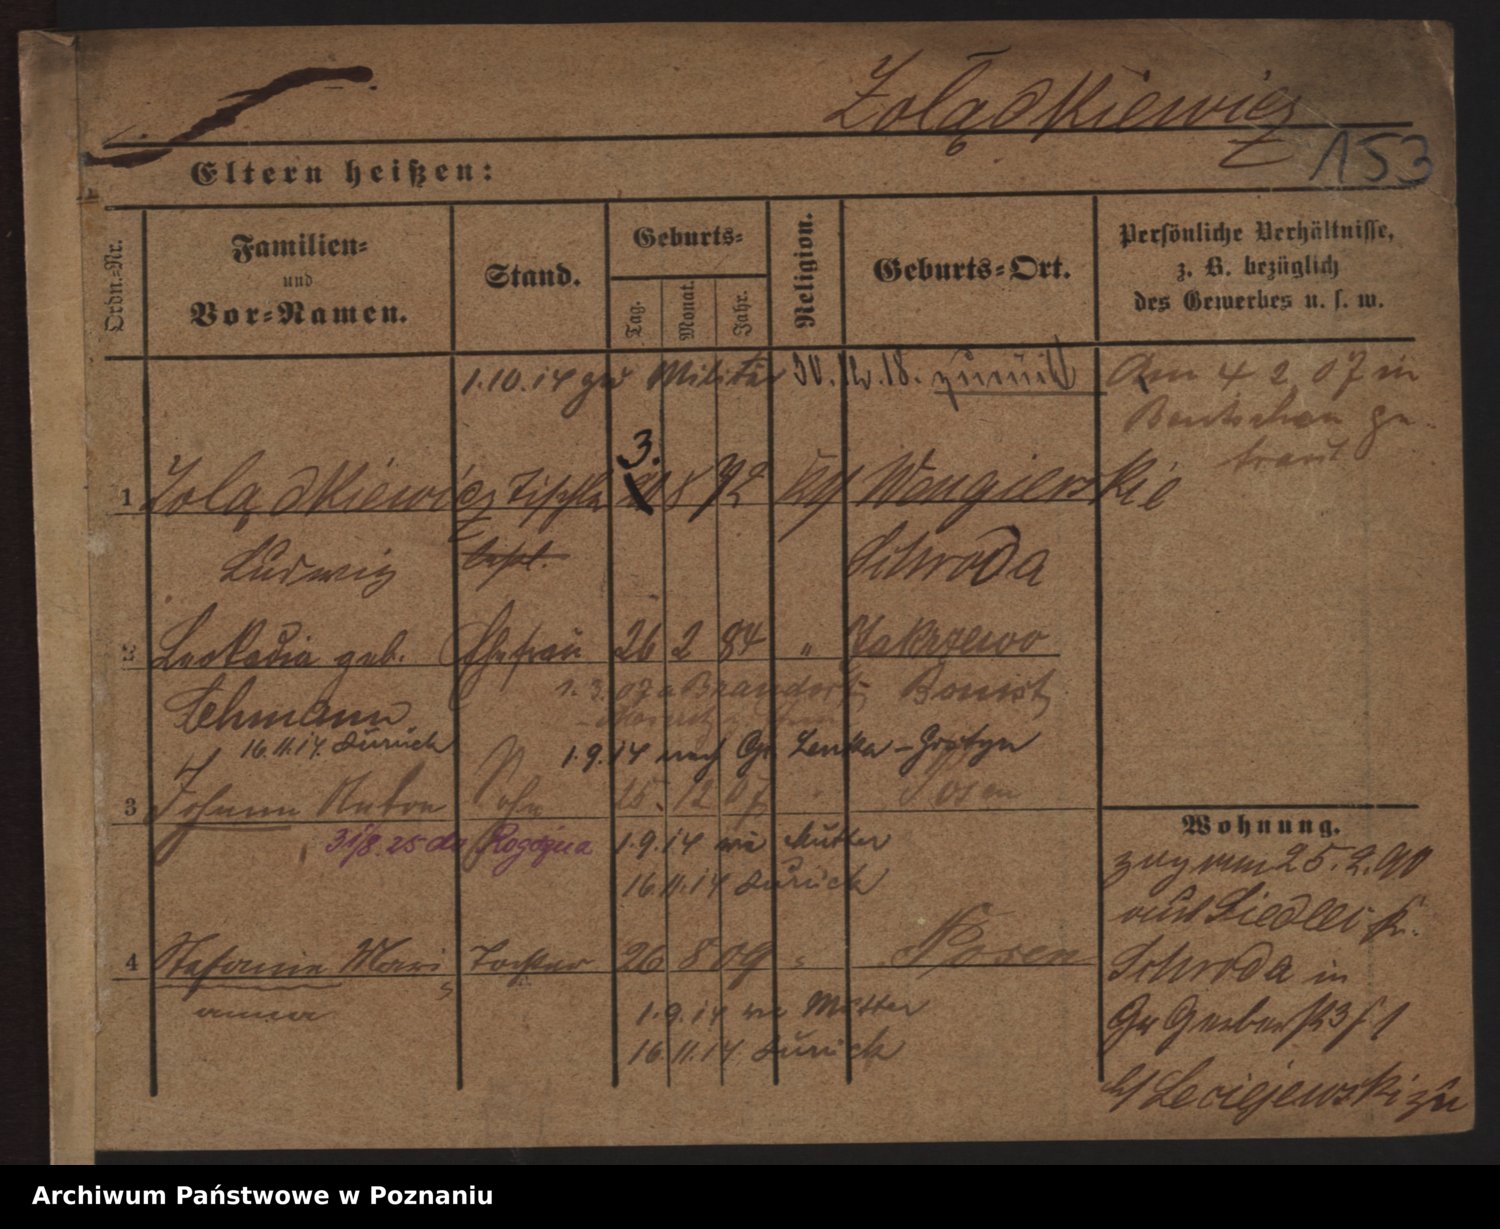 Żolądkiewicz
153
Eltern heißen:
Ordn.-Nr.
Familien-
und
Vor-Namen.
Stand.
Geburts-
Tag.
Monat.
Jahr.
Religion.
Geburts-Ort.
Persönliche Verhältnisse,
z. B. bezüglich
des Gewerbes u. s. w.
1.10.14 zum Militär 30.12.18. zurück
Am 4 2 07 in
Bentschen ge-
traut
3.
1 Żolądkiewicz Tischler 8 72 kath Wengierskie
Ludwig Schroda
2 Leokadia geb. Ehefrau 26 2 84 " Zakrzewo
Lehmann 1.3.07 a Bomst
16.11.14 zurück 1.9.14 nach Gr. Lenka - Gostyn
3 Johann Anton Sohn 15. 12 07 " Posen
31/8.25 Rogoźna 1.9.14 wie Mutter
16.11.14 zurück
4 Stefanie Marie Tochter 26 8 09 " Posen
anna
1.9.14 wie Mutter
16.11.14 zurück
Wohnung.
zugezogen 25.2.90
aus Siedlec K.
Schroda in
Gr Gerberstr 3
b/ Leciejewski zu
Archiwum Państwowe w Poznaniu